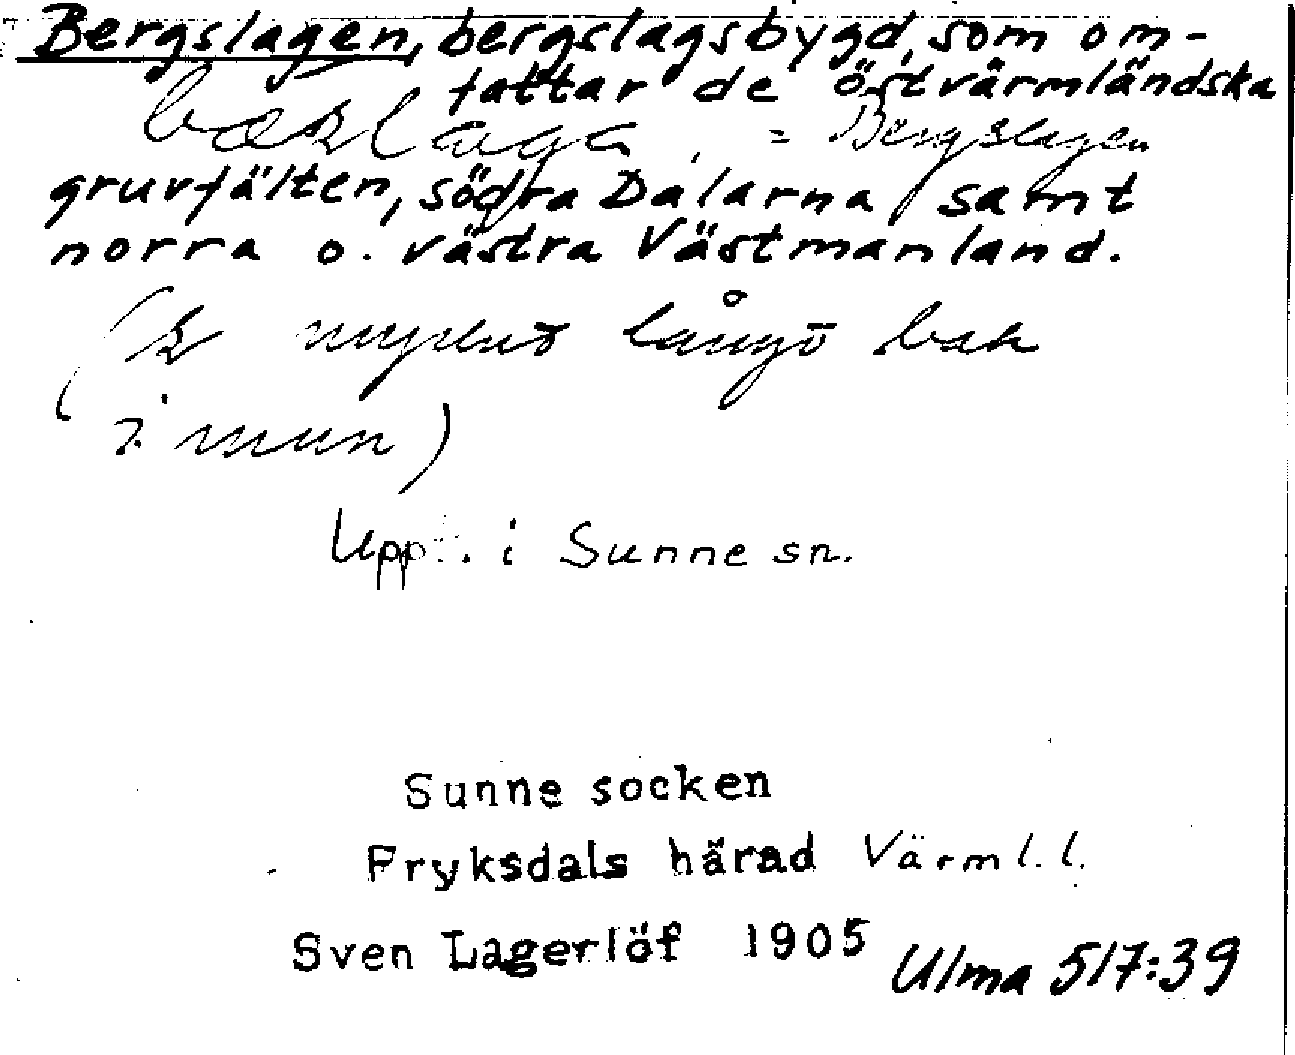 Bergslagen, bergslagsbygd, som om-
fattar de östvärmländska
= Bergslagen
gruvfälten, södra Dalarna samt
norra o. västra Västmanland.
(k mycket långt bak
i mun)
Uppt. i Sunne sn.
Sunne socken
Fryksdals härad Värml. l.
Sven Lagerlöf 1905 Ulma 517:39